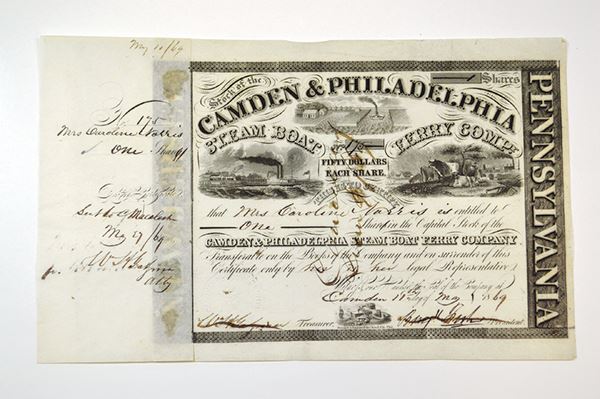 May 10/69
No. 175
Mrs Caroline Harris
of One Shares
May 27/69
Atty
Stock of the
1 Shares
CAMDEN & PHILADELPHIA
STEAM BOAT FERRY COMPY
FIFTY DOLLARS
EACH SHARE.
THIS IS TO CERTIFY
that Mrs Caroline Harris is entitled to
One Share in the Capital Stock of the
CAMDEN & PHILADELPHIA STEAM BOAT FERRY COMPANY
Transferable on the Books of the Company and on surrender of this
Certificate only by her or her legal Representative
Seal of the Company at
Camden day of May 1869
Treasurer President
PENNSYLVANIA